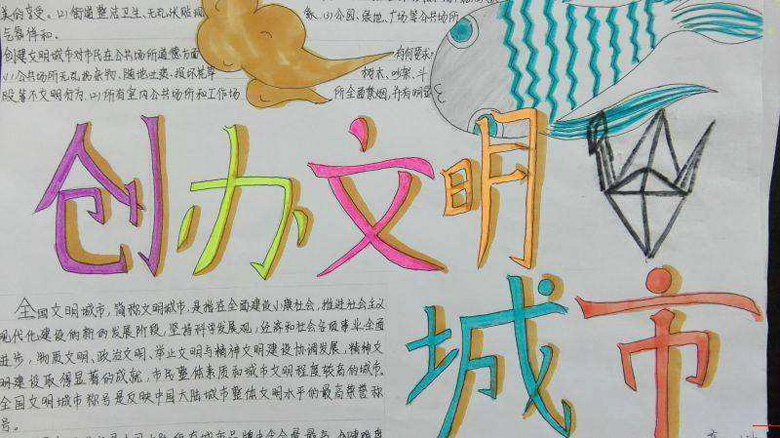 美的享受。(2)街道整洁卫生、无乱张贴现
象。(1)公园、绿地、广场等公共场所
气氛祥和。
创建文明城市对市民在公共场所道德方面
有何要求?
(1)公共场所无乱扔杂物、随地吐痰、损坏花草
树木、吵架、斗
殴等不文明行为。(2)所有室内公共场所和工作场
所全面禁烟,并有明显
创办文明
城市
全国文明城市,简称文明城市,是指在全面建设小康社会,推进社会主义
现代化建设的新的发展阶段,坚持科学发展观,经济和社会各项事业全面
进步,物质文明、政治文明、
文明与精神文明建设协调发展,精神文
明建设取得显著的成就,市民整体素质和城市文明程度较高的城市。
全国文明城市称号是反映中国大陆城市整体文明水平的最高荣誉称
号。